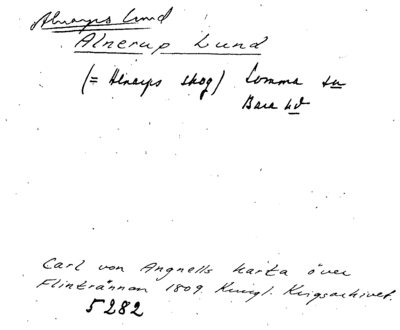 Alnarps Lund
Alnerup Lund
(= Alnarps skog) Lomma sn
Bara hd
Carl von Angnells karta över
Flintrännan 1809. Kungl. Krigsarkivet.
5282